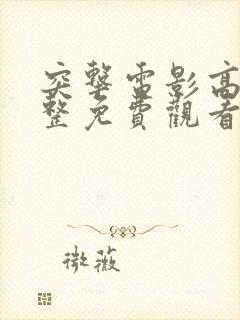 突擊電影高
整免費觀看
微薇